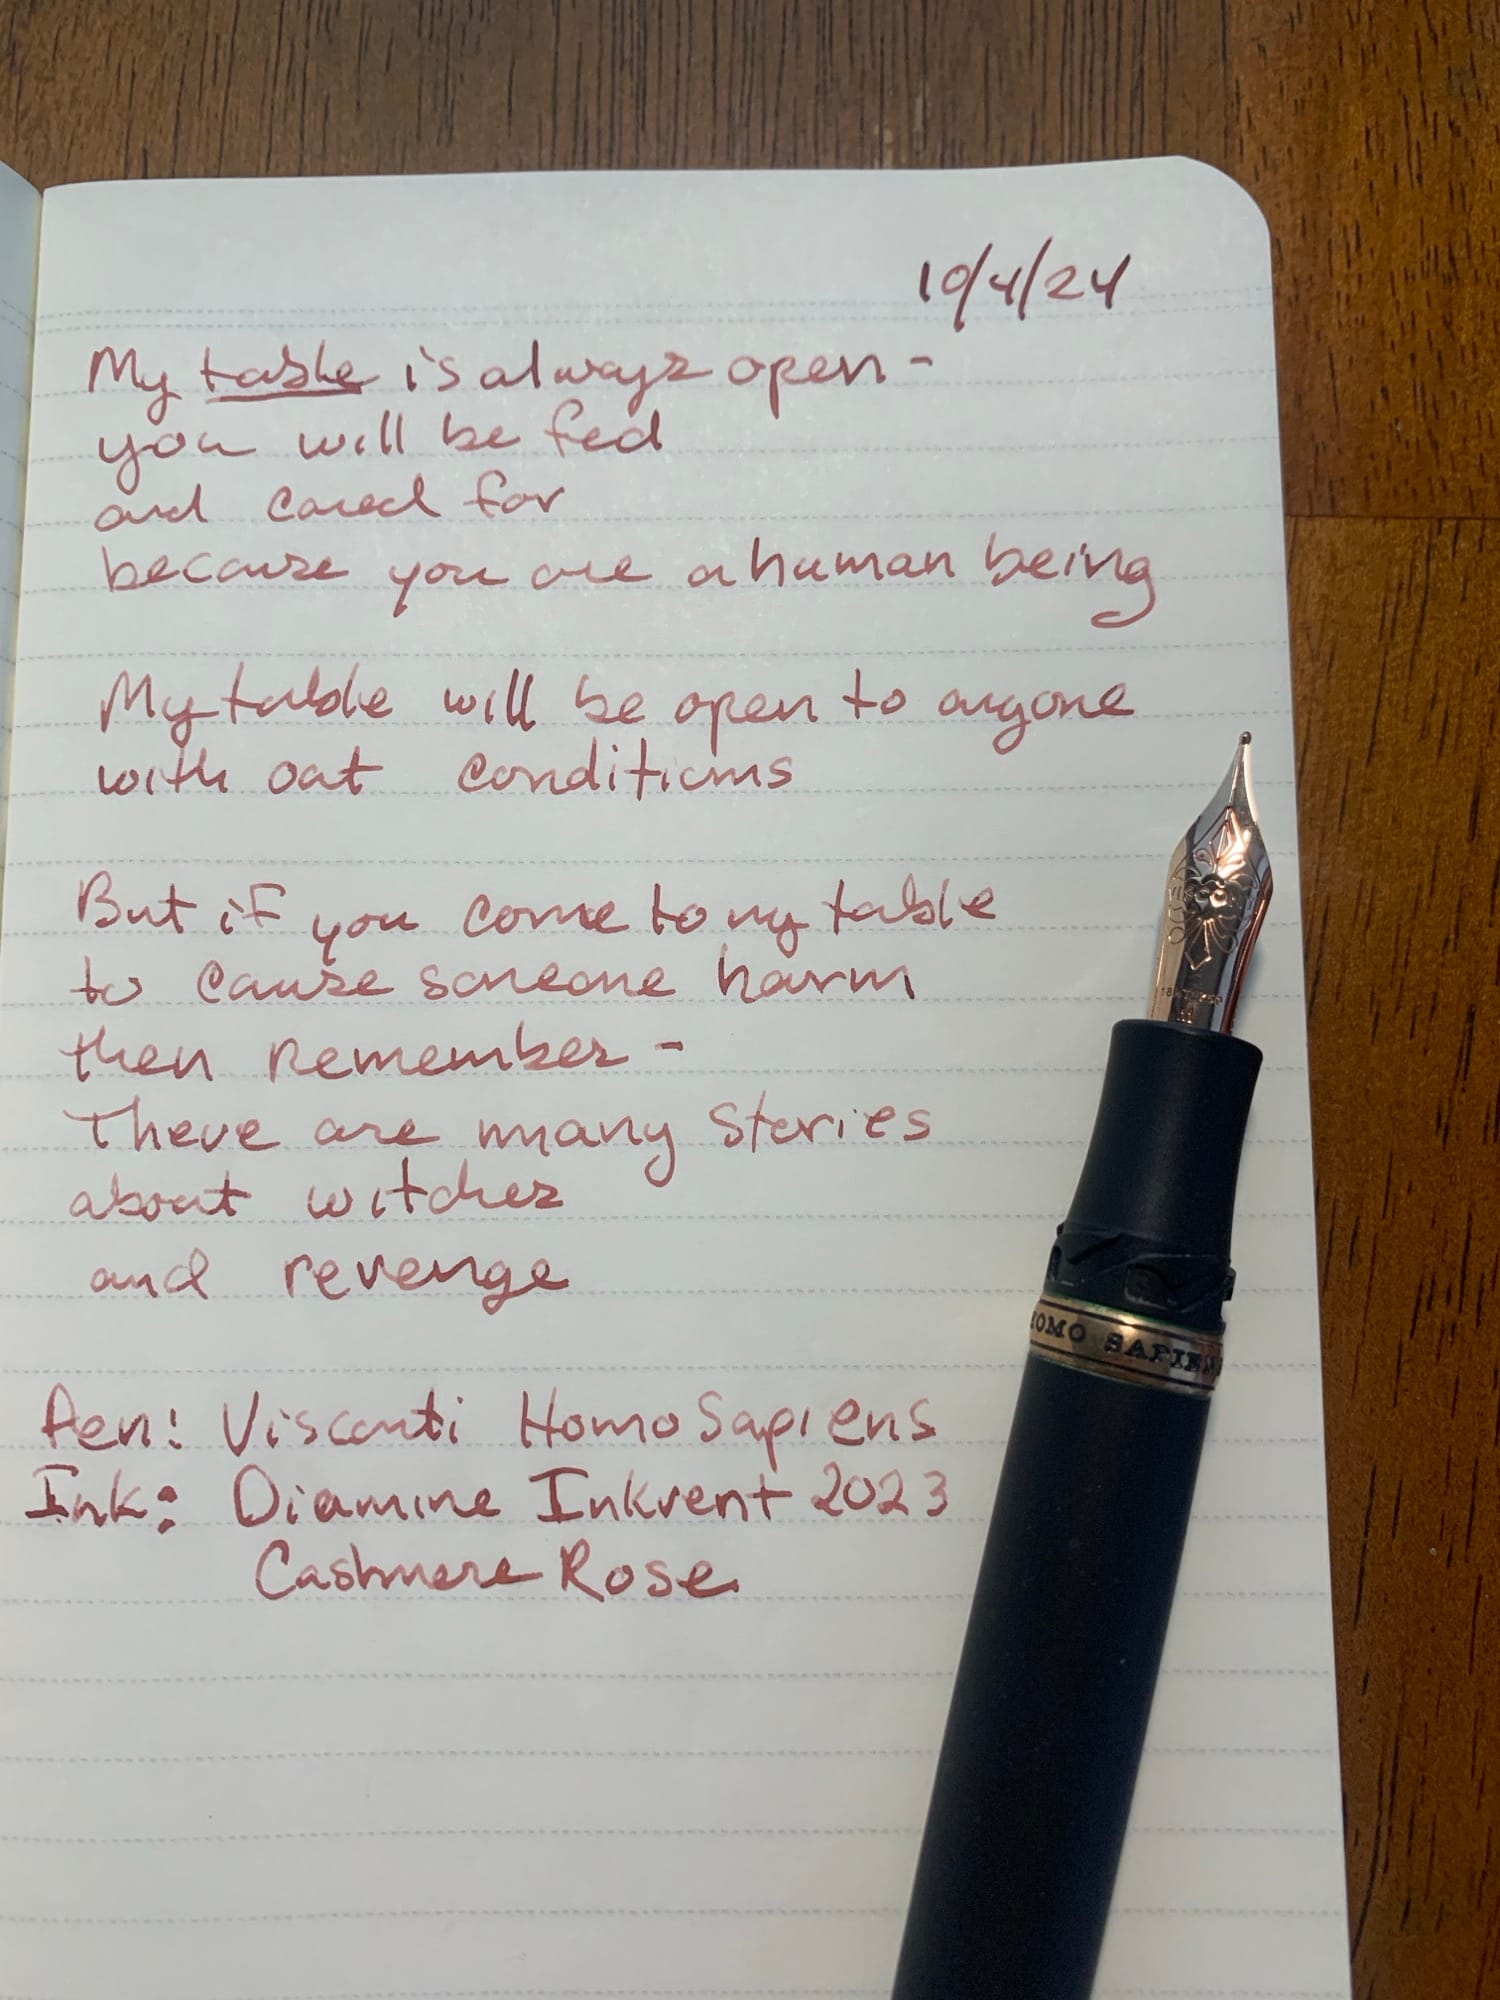 10/4/24
My table is always open -
you will be fed
and cared for
because you are a human being
My table will be open to anyone
with out conditions
But if you come to my table
to cause someone harm
then remember -
There are many stories
about witches
and revenge
Pen: Visconti Homo Sapiens
Ink: Diamine Inkvent 2023
Cashmere Rose
HOMO SAPIENS